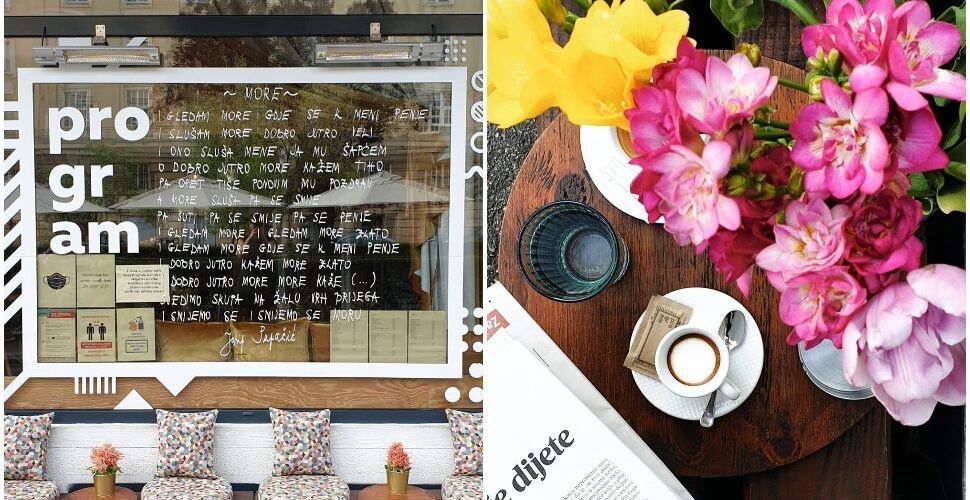 pro
gr
am
~ MORE ~
I GLEDAM MORE GDJE SE K MENI PENJE
I SLUŠAM MORE DOBRO JUTRO VELI
I ONO SLUŠA MENE JA MU ŠAPĆEM
O DOBRO JUTRO MORE KAŽEM TIHO
PA OPET TIŠE PONOVIM MU POZDRAV
A MORE SLUŠA PA SE SMIJE
PA ŠUTI PA SE SMIJE PA SE PENJE
I GLEDAM MORE I GLEDAM MORE ZLATO
I GLEDAM MORE GDJE SE K MENI PENJE
I DOBRO JUTRO KAŽEM MORE ZLATO
I DOBRO JUTRO MORE MORE KAŽE (...)
SJEDIMO SKUPA NA ŽALU VRH BRIJEGA
I SMIJEMO SE I SMIJEMO SE MORU
Josip Pupačić
dijete